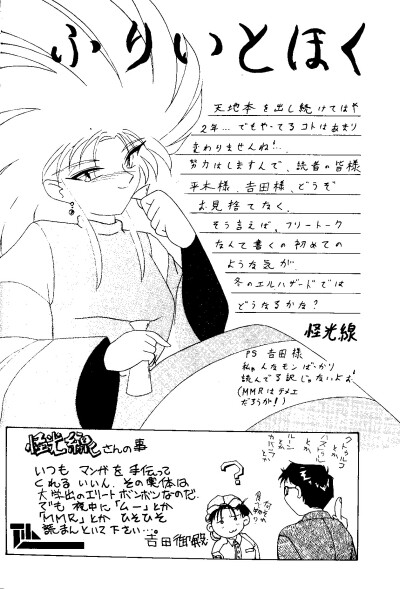 ふりいとほく
天地本を出し続けてはや
2年…でもやってるコトはあまり
変わりませんね!…
努力はしますんで、読者の皆様
平木様、吉田様、どうぞ
お見捨てなく。
そう言えば、フリートーク
なんて書くの初めての
ような気が
冬のエルハザードでは
どうなるかな?
怪光線
PS 吉田様
私ゃんなモンばかり
読んでる訳じゃないよよ
(MMRはテメエ
だろうが!)
怪光線さんの事
いつも マンガを手伝って
くれる いい人。その実体は
大学出のエリートボンボンなのだ。
でも 夜中に「ムー」とか
「MMR」とか ひそひそ
読まんといて下さい…。
吉田御殿
?
クトゥルフ
とか
ハストゥル
とか
ルーン
とか
カバラとか